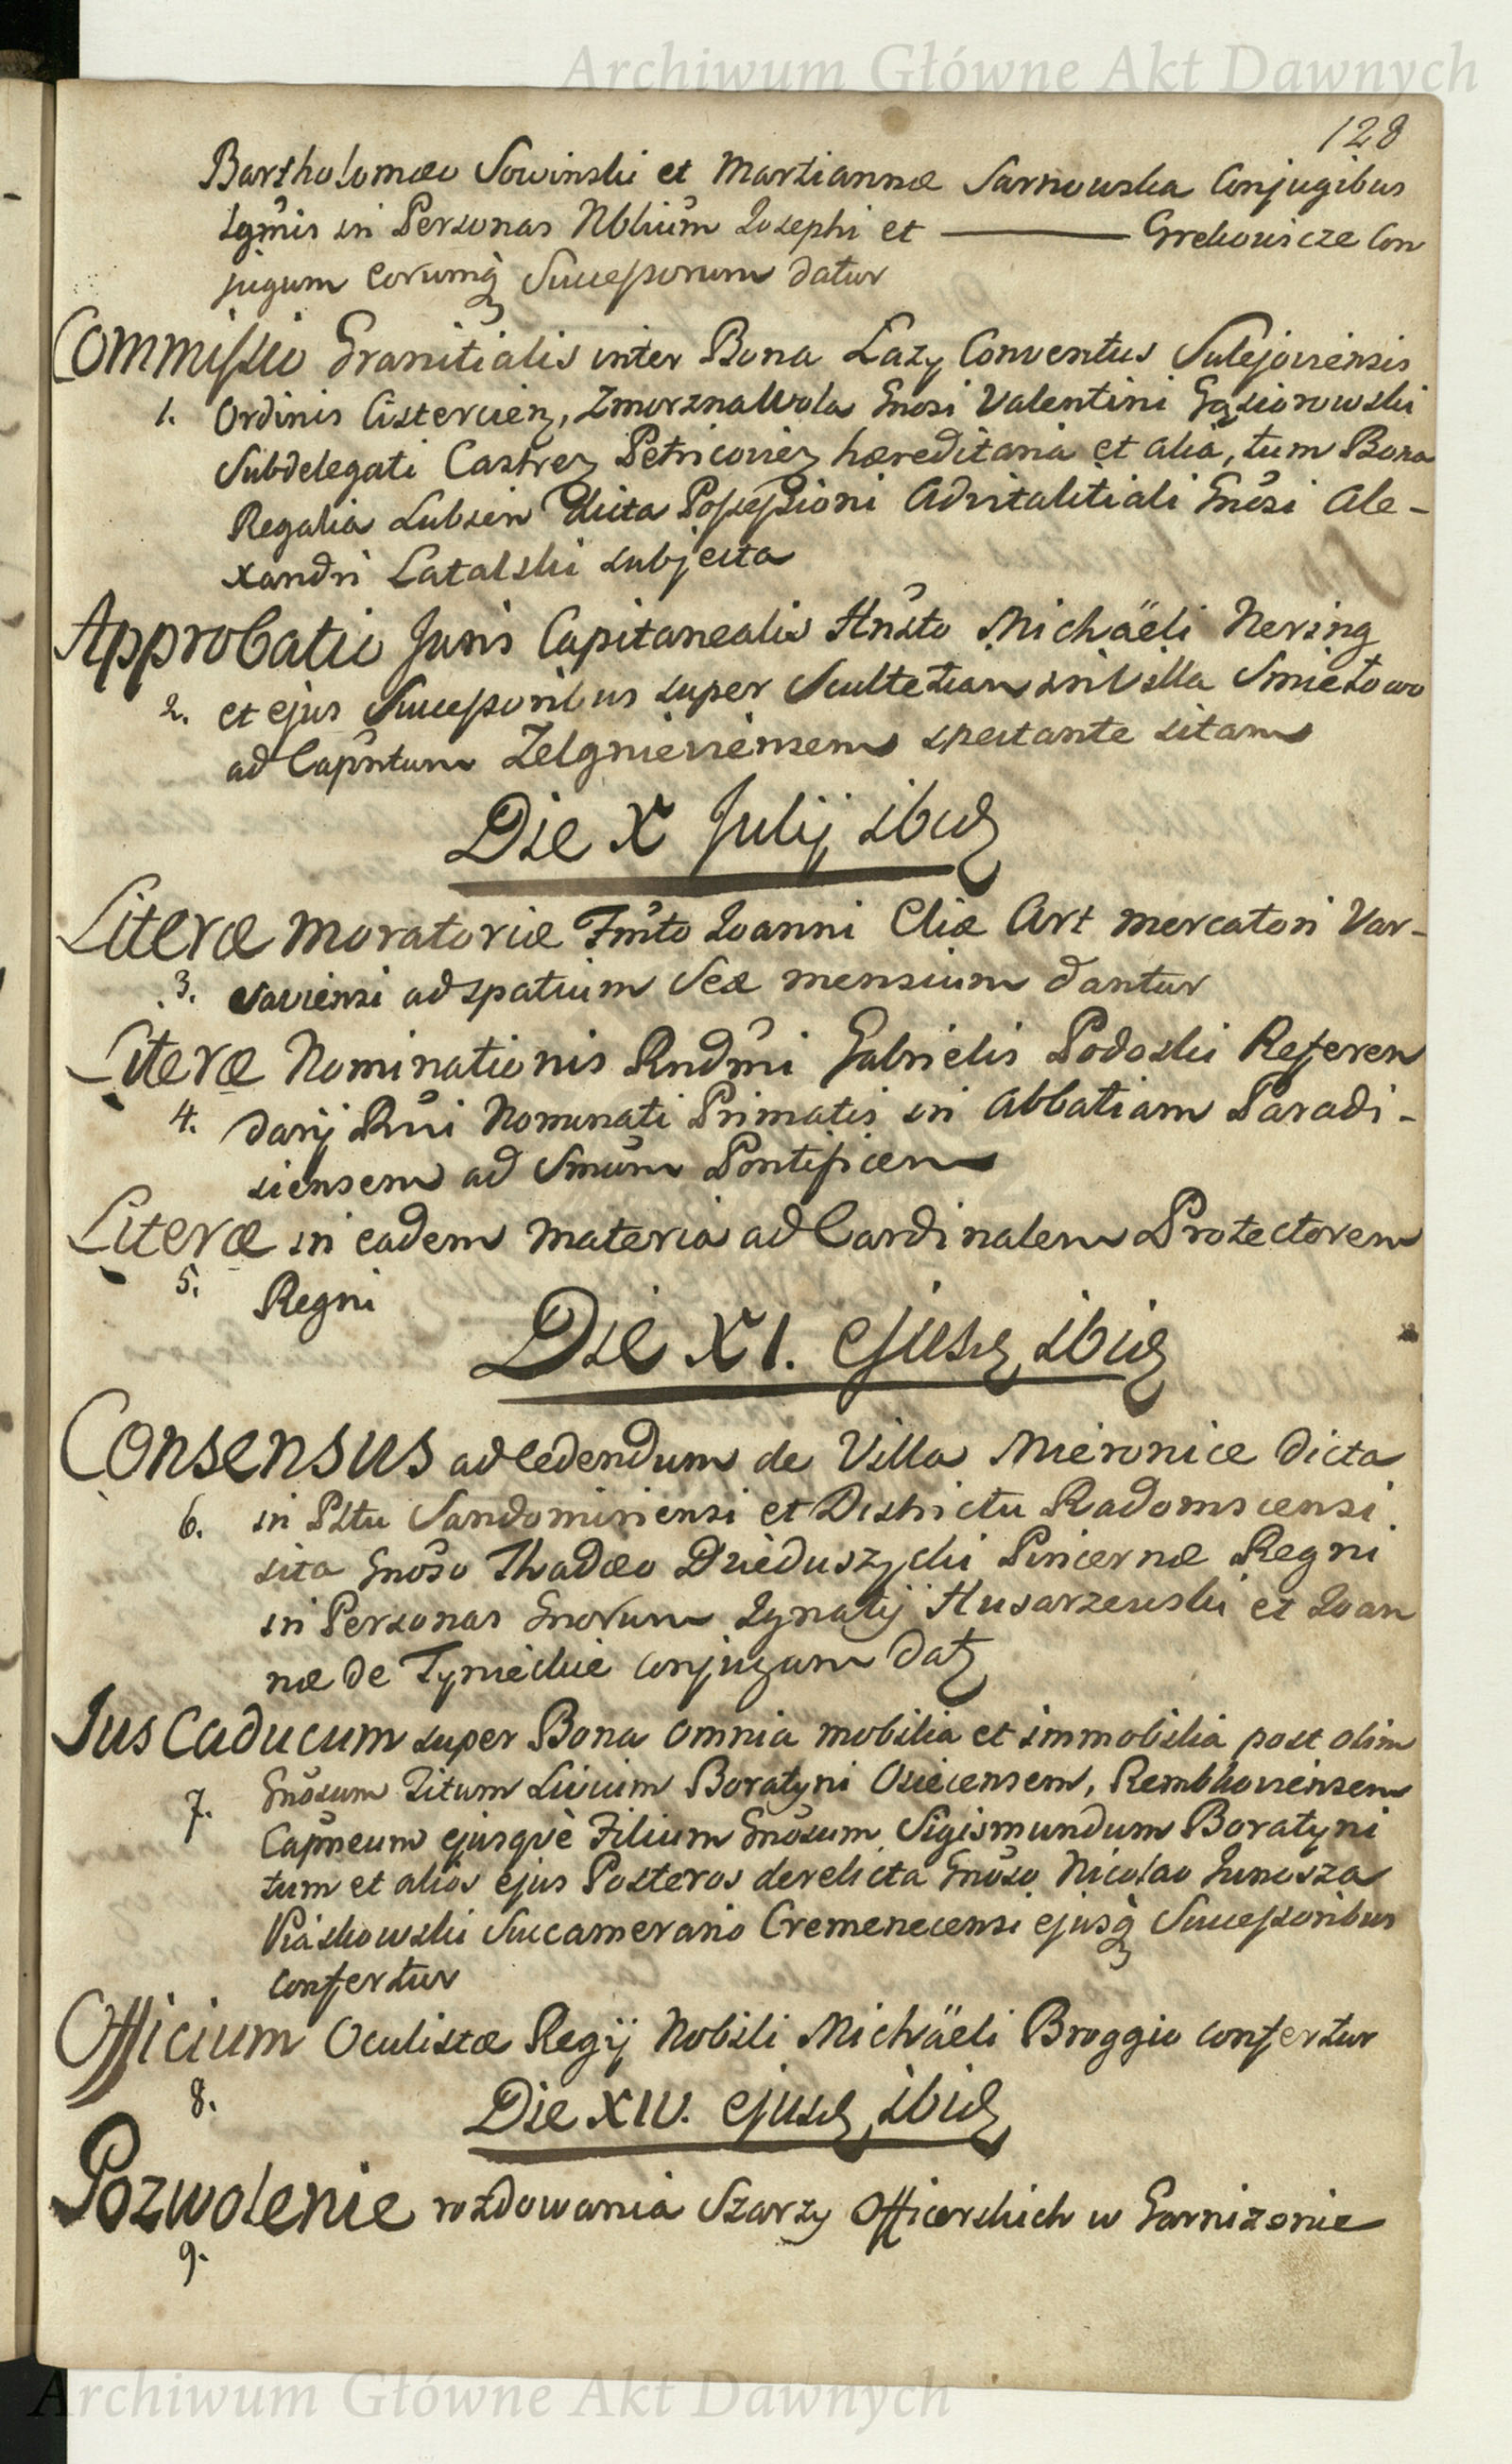 Archiwum Główne Akt Dawnych
128
Bartholomæo Sowinski et Martiannæ Sarnowska Conjugibus
Lgmis in Personas Nblium Josephi et ——— Grekowicze Con
jugum eorumq Successorum datur
Commissio Granitialis inter Bona Łazy Conventus Sulejoviensis
1. Ordinis Cistercien, Zmorzna Wola Gnosi Valentini Gąsiorowski
Subdelegati Castren Petricovien hæreditaria et alia, tum Bona
Regalia Lubien dicta Possessioni Advitalitiali Gnosi Ale-
xandri Latalski subjecta
Approbatio Juris Capitanealis Hnsto Michäeli Nering
2. et ejus Successoribus super Scultetiam in Villa Smiełowo
ad Capntum Zelgnieviensem spectante sitam
Die X Julij ibid
Literæ Moratoriæ Fmto Joanni Eliæ Art mercatori Var-
3. saviensi ad spatium Sex mensium dantur
Literæ Nominationis Rndmi Gabrielis Podoski Referen
4. darij Rni Nominati Primatis in Abbatiam Paradi-
siensem ad Smum Pontificem
Literæ in eadem materia ad Cardinalem Protectorem
5. Regni
Die XI. ejusd ibid
Consensus ad cedendum de Villa Mieronice dicta
6. in Pltu Sandomiriensi et Districtu Radomscensi
sita Gnoso Thadæo Dzieduszycki Pincernæ Regni
in Personas Gnorum Ignatij Husarzewski et Joan
næ de Tynieckie conjugum datz
Jus Caducum super Bona omnia mobilia et immobilia post olim
7. Gnosum Titum Livium Boratyni Osiecensem, Rembkoviensem
Capneum ejusque Filium Gnosum Sigismundum Boratyni
tum et alios ejus Posteros derelicta Gnoso Nicolao Junosza
Piaskowski Succamerario Cremenecensi ejusq Successoribus
confertur
Officium Oculistæ Regij Nobili Michäeli Broggio confertur
8.
Die XIV. ejusd ibid
Pozwolenie rozdowania Szarzy Officerskich w Garnizonie
9.
Archiwum Główne Akt Dawnych